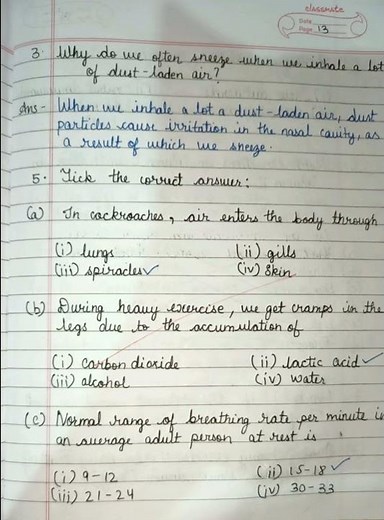 classmate
Date
Page 13
3. Why do we often sneeze when we inhale a lot
of dust-laden air?
Ans - When we inhale a lot a dust-laden air, dust
particles cause irritation in the nasal cavity, as
a result of which we sneeze.
5. Tick the correct answer:
(a) In cockroaches, air enters the body through
(i) lungs (ii) gills
(iii) spiracles✓ (iv) Skin
(b) During heavy exercise, we get cramps in the
legs due to the accumulation of
(i) carbon dioxide (ii) lactic acid ✓
(iii) alcohol (iv) water
(c) Normal range of breathing rate per minute in
an average adult person at rest is :
(i) 9-12 (ii) 15-18 ✓
(iii) 21-24 (iv) 30-33